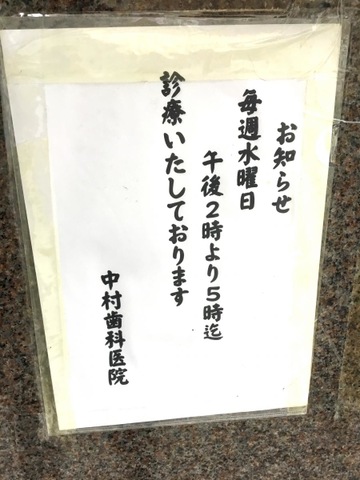 お知らせ
毎週水曜日
午後2時より5時迄
診療いたしております
中村歯科医院